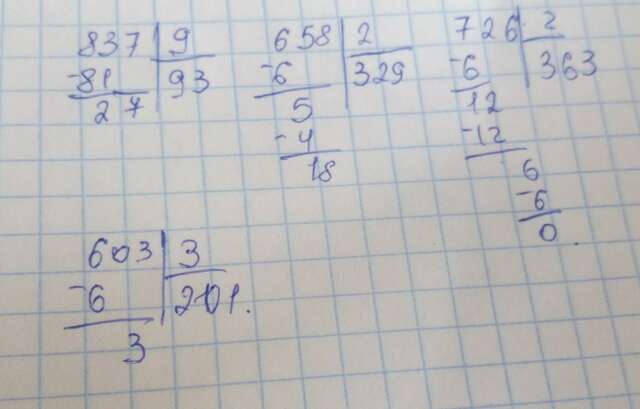 837 9
-81 93
27
658 2
-6 329
5
-4
18
726 2
-6 363
12
-12
6
-6
0.
603 3
-6 201.
3